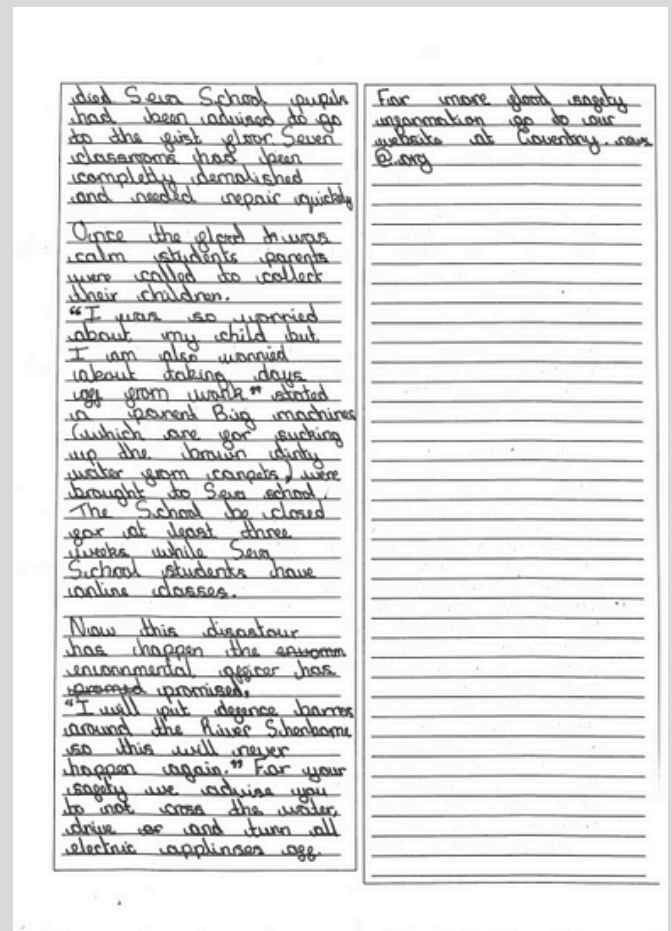 died Seva School pupils
had been advised to go
to the first floor Seven
classrooms had been
completly demolished
and needed repair quickly
Once the flood was
calm students parents
were called to collect
their children.
"I was so worried
about my child but
I am also worried
about taking days
off from work" stated
a parent Big machines
(which are for sucking
up the brown dirty
water from carpets) were
brought to Seva school.
The School be closed
for at least three
weeks while Seva
School students have
online classes.
Now this disastour
has happen the
enviornmental officer has
promised,
"I will put defence barres
around the River Sherborne
so this will never
happen again." For your
safety we advise you
to not cross the water,
drive or and turn all
electric applinses off.
For more flood safety
information go to our
website at Coventry.news
@.org